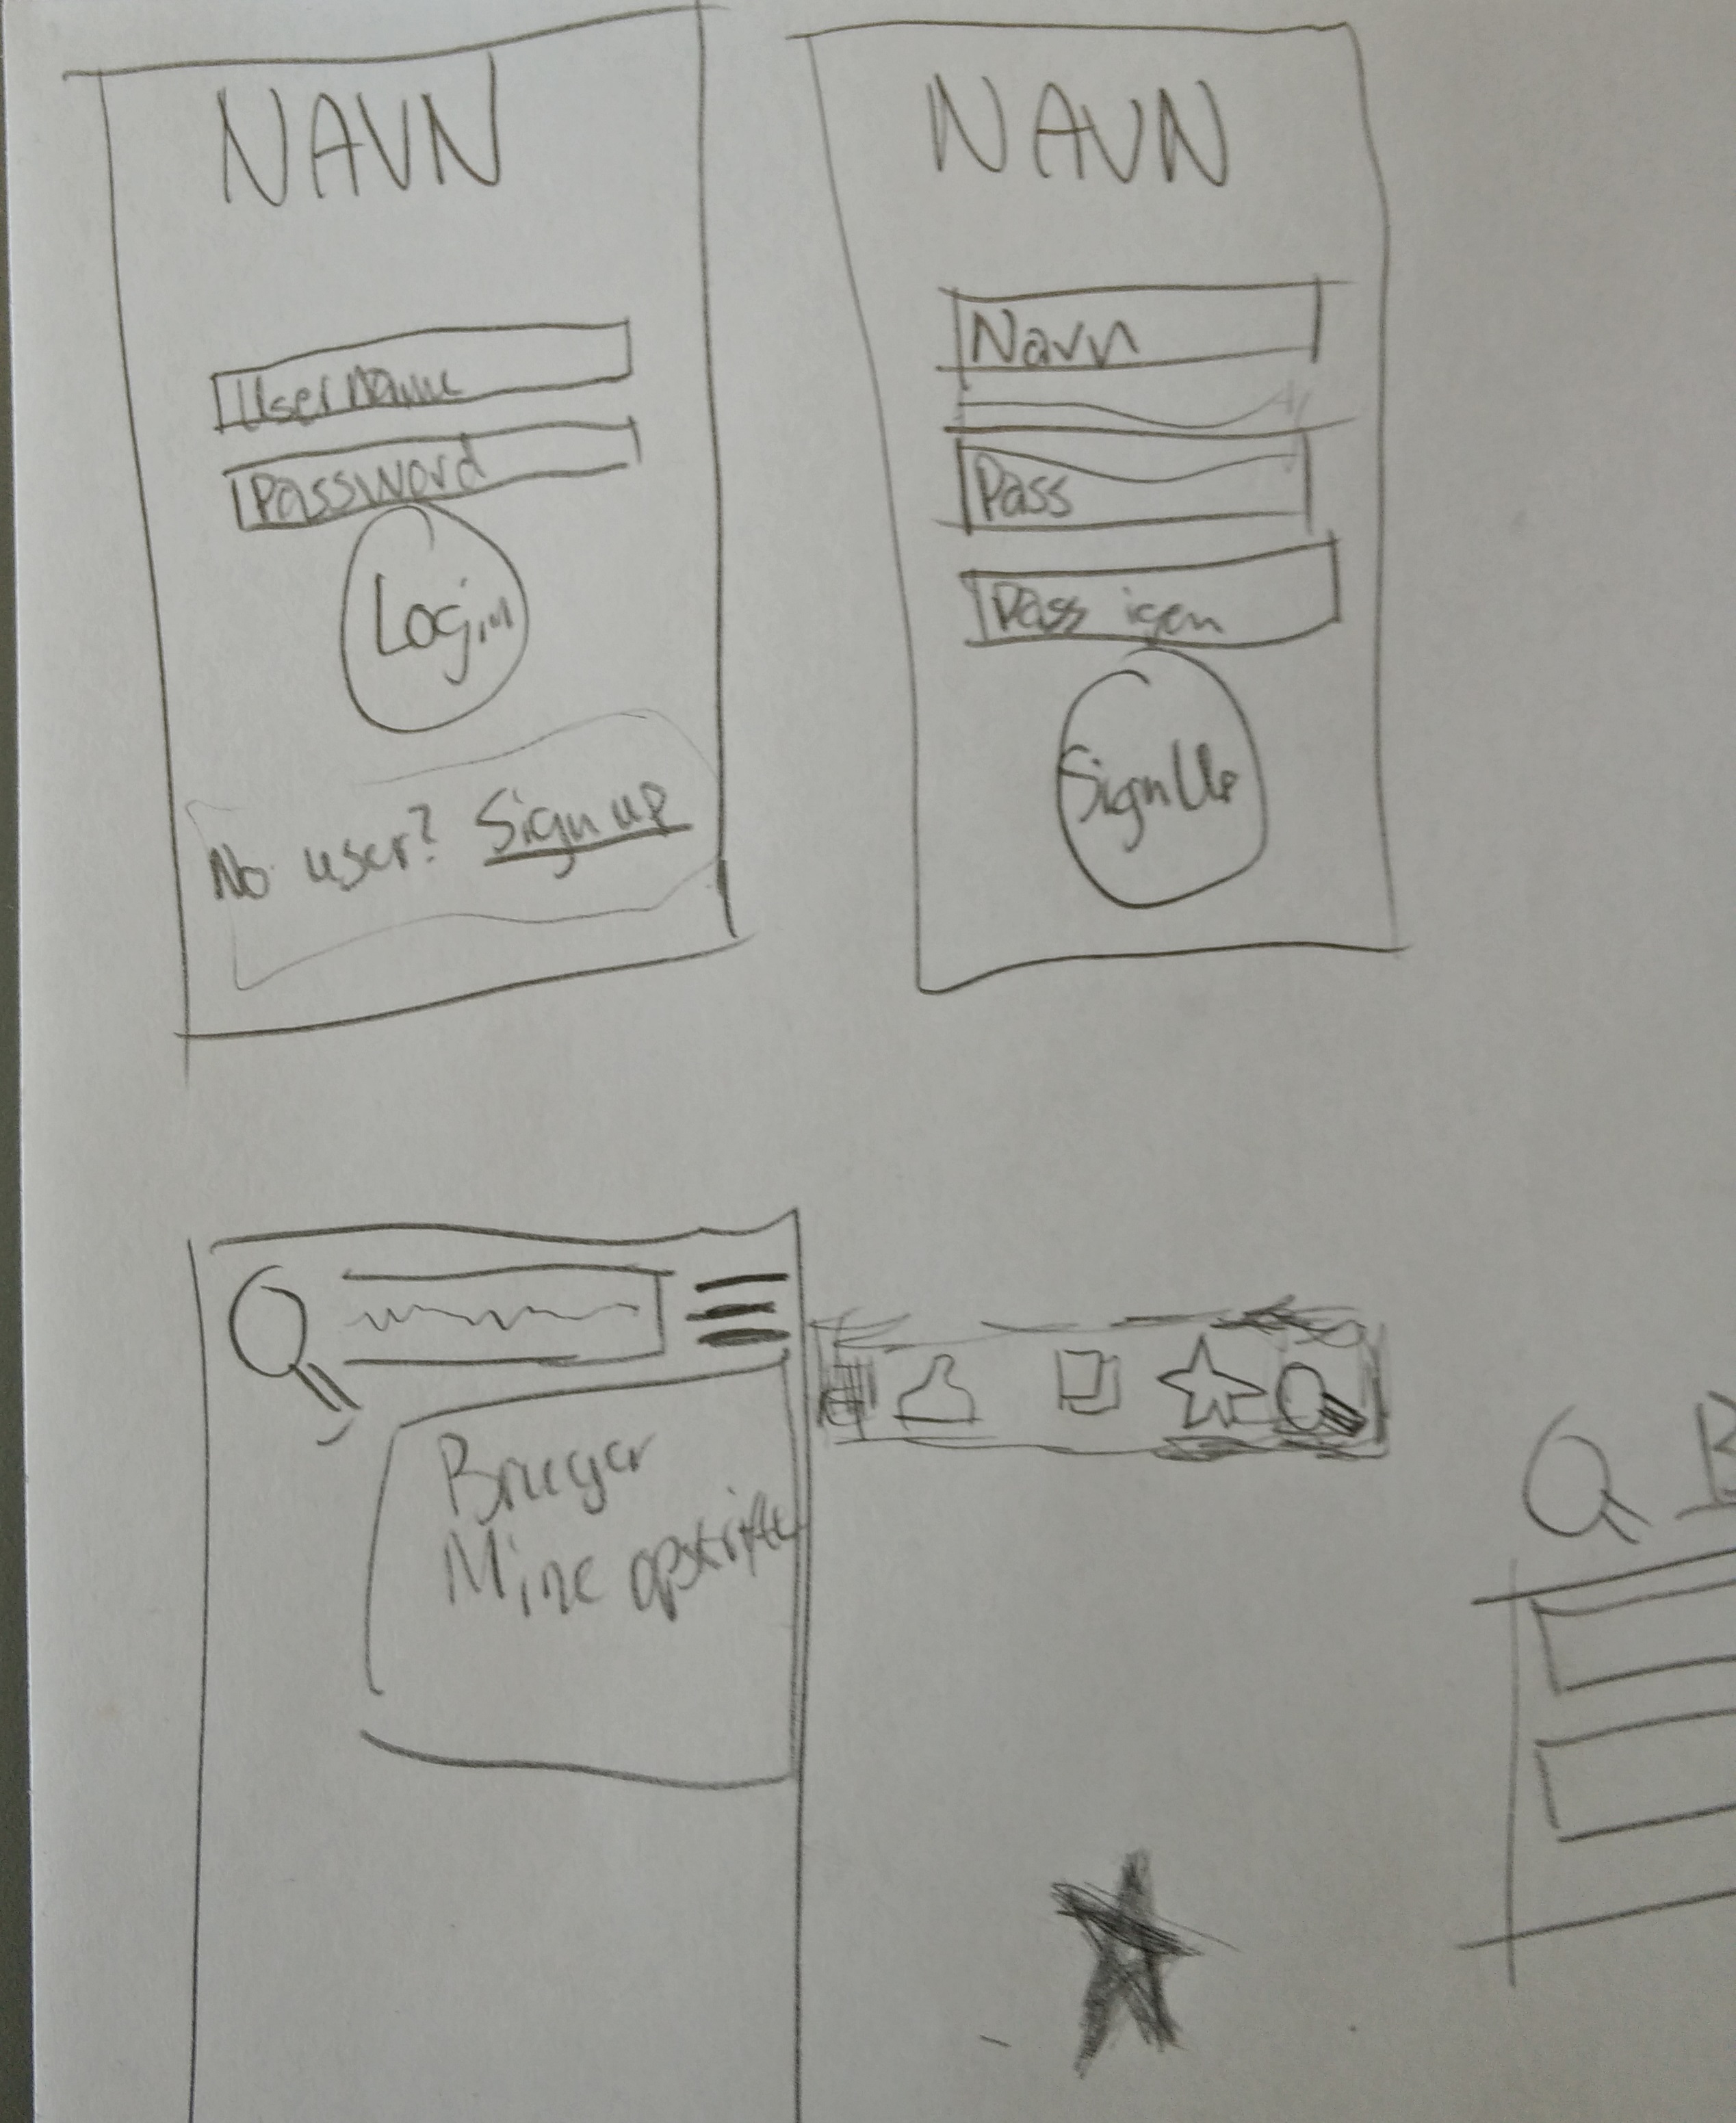 NAVN
User Name
Password
Login
No user? Sign up
NAVN
Navn
Pass
Pass igen
Sign Up
Bruger
Mine opskrifte
B